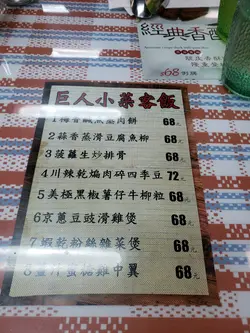 經典香酥
$68
巨人小菜客飯
1梅香鹹魚蒸肉餅 68元
2蒜香蒸滑豆腐魚柳 68元
3菠蘿生炒排骨 68元
4川辣乾煸肉碎四季豆 72元
5美極黑椒薯仔牛柳粒 68元
6京蔥豆豉滑雞煲 68元
7蝦乾粉絲雜菜煲 68元
蜜糖雞中翼 68元